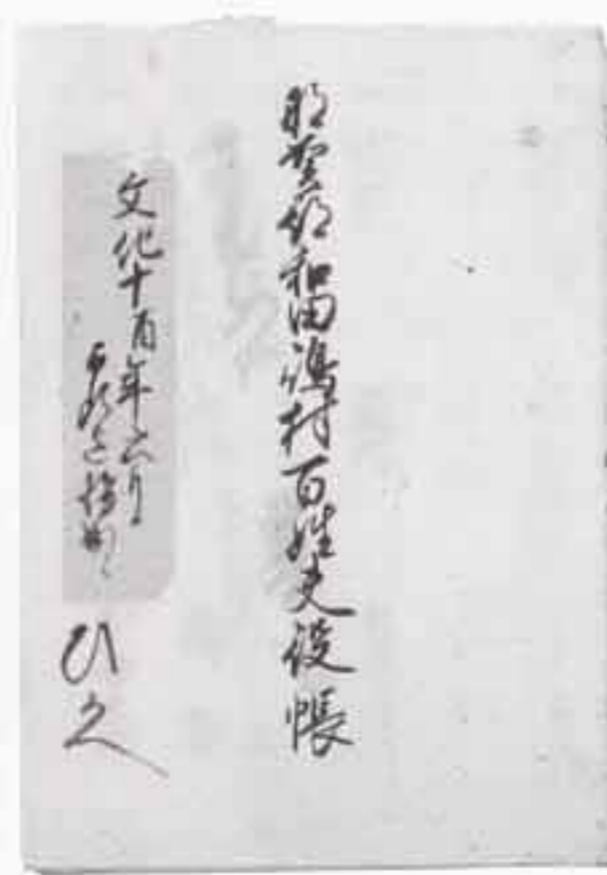 那賀郡和田嶋村百姓夫役帳
文化十酉年六月
ひ久